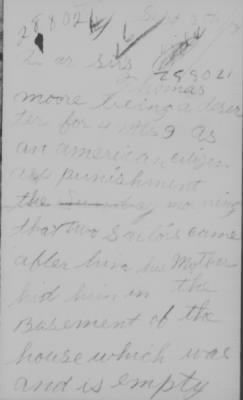 298021
Dear sirs
298021
Thomas
moore being a deser
ter for a
as
an american citizen
ask punishment
the Sunday morning
that two Sailors came
after him his Mother
hid him in the
Basement of the
house which was
and is empty